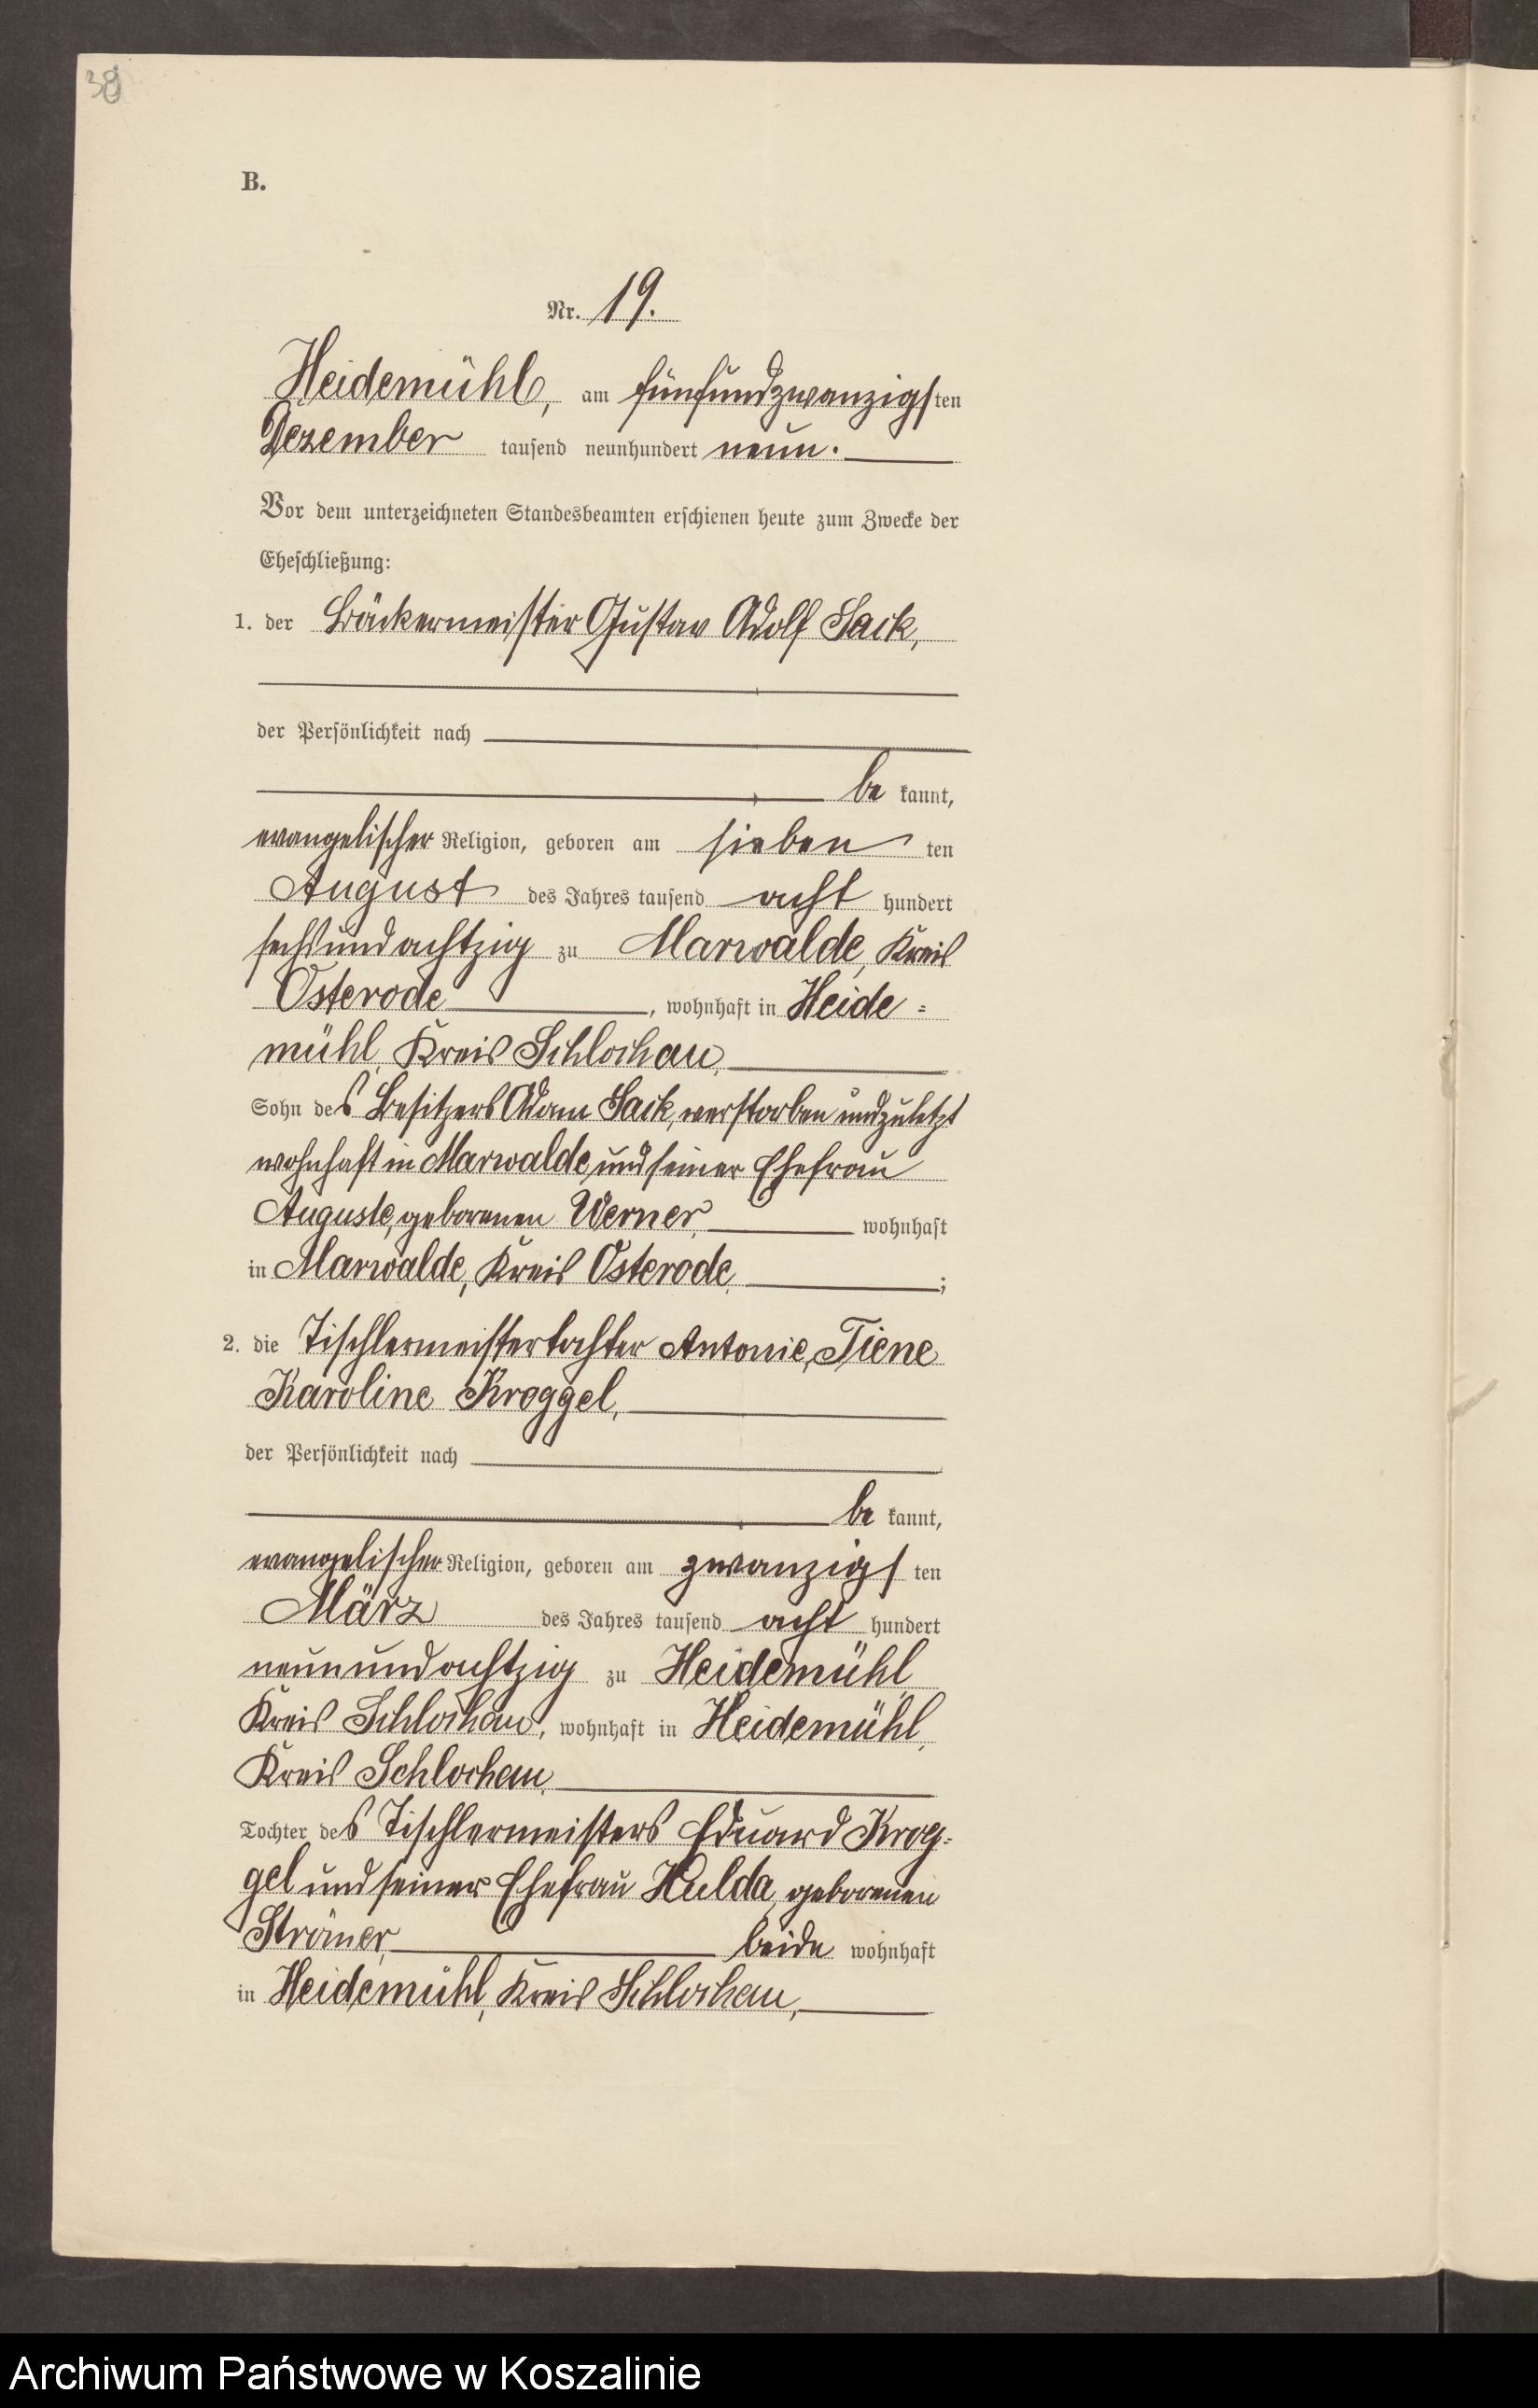 38
B.
Nr. 19.
Heidemühl, am fünfundzwanzigsten
Dezember tausend neunhundert neun.
Vor dem unterzeichneten Standesbeamten erschienen heute zum Zwecke der
Eheschließung:
1. der Bäckermeister Gustav Adolf Sack,
der Persönlichkeit nach
be kannt,
evangelischer Religion, geboren am sieben ten
August des Jahres tausend acht hundert
sechsundachtzig zu Marwalde, Kreis
Osterode, wohnhaft in Heide=
mühl, Kreis Schlochau,
Sohn des Besitzers Adam Sack, verstorben und zuletzt
wohnhaft in Marwalde, und seiner Ehefrau
Auguste, geborenen Werner, wohnhaft
in Marwalde, Kreis Osterode, ;
2. die Tischlermeistertochter Antonie, Tiene
Karoline Kroggel,
der Persönlichkeit nach
be kannt,
evangelischer Religion, geboren am zwanzigs ten
März des Jahres tausend acht hundert
neunundachtzig zu Heidemühl,
Kreis Schlochau, wohnhaft in Heidemühl,
Kreis Schlochau,
Tochter des Tischlermeisters Eduard Krog=
gel und seiner Ehefrau Hulda, geborenen
Strömer, beide wohnhaft
in Heidemühl, Kreis Schlochau,
Archiwum Państwowe w Koszalinie